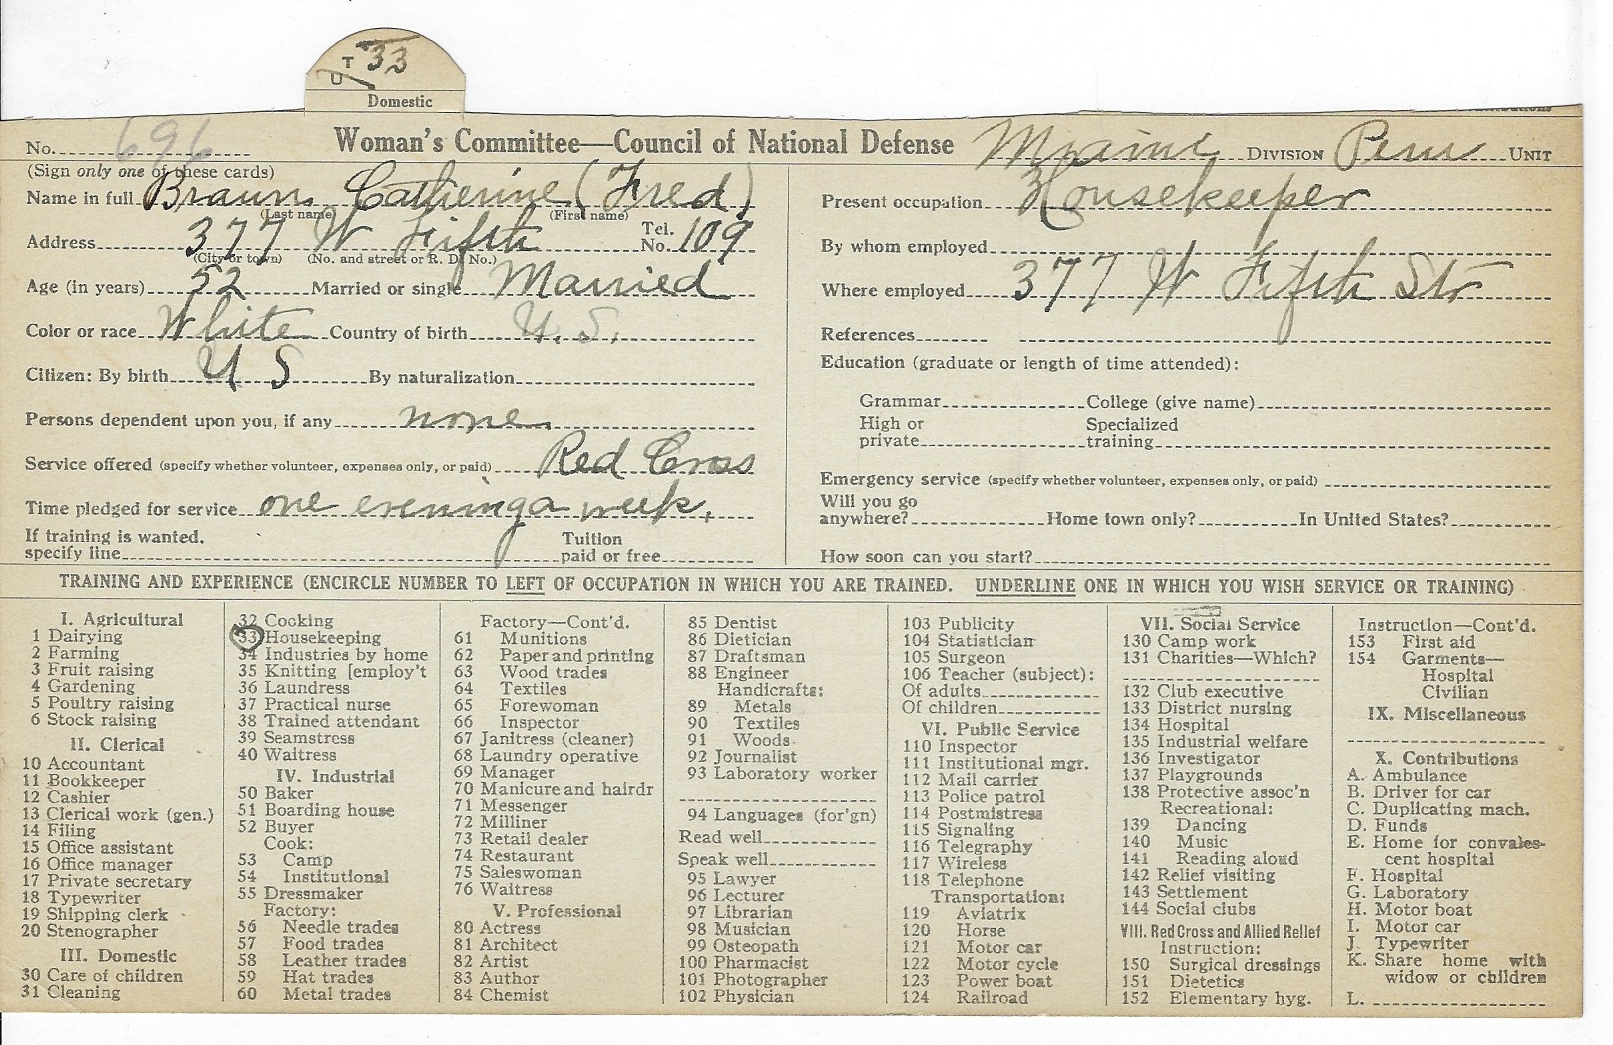 T 33
U
Domestic
No. 696 Woman's Committee—Council of National Defense Miami DIVISION Peru UNIT
(Sign only one of these cards)
Name in full Braun Catherine (Fred)
(Last name) (First name)
Address 377 W Fifth Tel. No. 109
(City or town) (No. and street or R. D. No.)
Age (in years) 52 Married or single Married
Color or race White Country of birth U. S.
Citizen: By birth U S By naturalization
Persons dependent upon you, if any none
Service offered (specify whether volunteer, expenses only, or paid) Red Cross
Time pledged for service one evening a week.
If training is wanted, specify line Tuition paid or free
Present occupation Housekeeper
By whom employed
Where employed 377 W Fifth Str
References
Education (graduate or length of time attended):
Grammar College (give name)
High or private Specialized training
Emergency service (specify whether volunteer, expenses only, or paid)
Will you go anywhere? Home town only? In United States?
How soon can you start?
TRAINING AND EXPERIENCE (ENCIRCLE NUMBER TO LEFT OF OCCUPATION IN WHICH YOU ARE TRAINED. UNDERLINE ONE IN WHICH YOU WISH SERVICE OR TRAINING)
I. Agricultural
1 Dairying
2 Farming
3 Fruit raising
4 Gardening
5 Poultry raising
6 Stock raising
II. Clerical
10 Accountant
11 Bookkeeper
12 Cashier
13 Clerical work (gen.)
14 Filing
15 Office assistant
16 Office manager
17 Private secretary
18 Typewriter
19 Shipping clerk
20 Stenographer
III. Domestic
30 Care of children
31 Cleaning
32 Cooking
33 Housekeeping
34 Industries by home
35 Knitting [employ't
36 Laundress
37 Practical nurse
38 Trained attendant
39 Seamstress
40 Waitress
IV. Industrial
50 Baker
51 Boarding house
52 Buyer
Cook:
53 Camp
54 Institutional
55 Dressmaker
Factory:
56 Needle trades
57 Food trades
58 Leather trades
59 Hat trades
60 Metal trades
Factory—Cont'd.
61 Munitions
62 Paper and printing
63 Wood trades
64 Textiles
65 Forewoman
66 Inspector
67 Janitress (cleaner)
68 Laundry operative
69 Manager
70 Manicure and hairdr
71 Messenger
72 Milliner
73 Retail dealer
74 Restaurant
75 Saleswoman
76 Waitress
V. Professional
80 Actress
81 Architect
82 Artist
83 Author
84 Chemist
85 Dentist
86 Dietician
87 Draftsman
88 Engineer
Handicrafts:
89 Metals
90 Textiles
91 Woods
92 Journalist
93 Laboratory worker
94 Languages (for'gn)
Read well
Speak well
95 Lawyer
96 Lecturer
97 Librarian
98 Musician
99 Osteopath
100 Pharmacist
101 Photographer
102 Physician
103 Publicity
104 Statistician
105 Surgeon
106 Teacher (subject):
Of adults
Of children
VI. Public Service
110 Inspector
111 Institutional mgr.
112 Mail carrier
113 Police patrol
114 Postmistress
115 Signaling
116 Telegraphy
117 Wireless
118 Telephone
Transportation:
119 Aviatrix
120 Horse
121 Motor car
122 Motor cycle
123 Power boat
124 Railroad
VII. Social Service
130 Camp work
131 Charities—Which?
132 Club executive
133 District nursing
134 Hospital
135 Industrial welfare
136 Investigator
137 Playgrounds
138 Protective assoc'n
Recreational:
139 Dancing
140 Music
141 Reading aloud
142 Relief visiting
143 Settlement
144 Social clubs
VIII. Red Cross and Allied Relief
Instruction:
150 Surgical dressings
151 Dietetics
152 Elementary hyg.
Instruction—Cont'd.
153 First aid
154 Garments—
Hospital
Civilian
IX. Miscellaneous
X. Contributions
A. Ambulance
B. Driver for car
C. Duplicating mach.
D. Funds
E. Home for convales-
cent hospital
F. Hospital
G. Laboratory
H. Motor boat
I. Motor car
J. Typewriter
K. Share home with
widow or children
L.